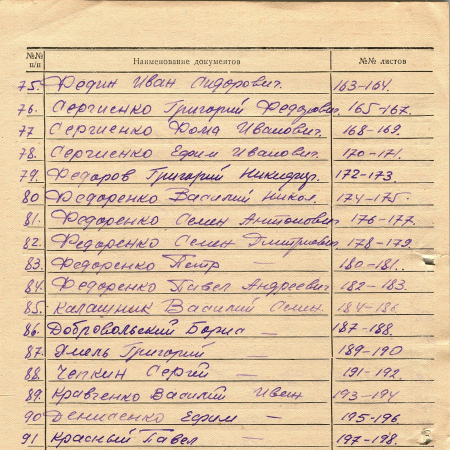 №№ п/п Наименование документов №№ листов
75. Федин Иван Сидорович. 163-164.
76. Сергиенко Григорий Федорович. 165-167.
77 Сергиенко Фома Иванович. 168-169.
78. Сергиенко Ефим Иванович. 170-171.
79. Федоров Григорий Никифор. 172-173.
80 Федоренко Василий Никол. 174-175.
81. Федоренко Семен Антонович 176-177.
82. Федоренко Семен Дмитриевич. 178-179.
83. Федоренко Петр — 180-181.
84. Федоренко Павел Андреевич 182-183.
85. Калашник Василий Семен. 184-186
86. Добровольский Борис — 187-188.
87. Хмель Григорий — 189-190
88. Чепкин Сергей — 191-192.
89. Кравченко Василий Иван 193-194
90 Денисенко Ефим — 195-196
91 Красный Павел — 197-198.